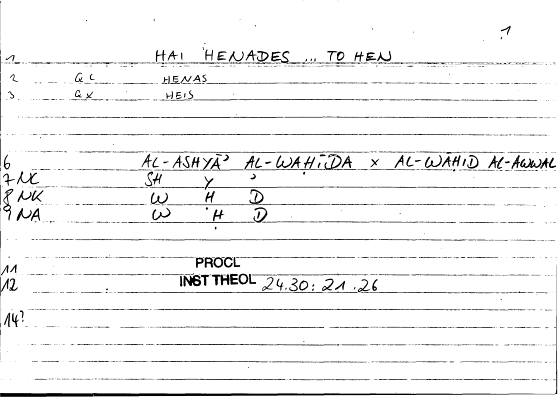 1
1 HAI HENADES ... TO HEN
2 GL HENAS
3 GX HEIS
6 AL-ASHYĀʾ AL-WAḤĪDA x AL-WĀḤID AL-AWWAL
7 NC SH Y ʾ
8 NK W Ḥ D
9 NA W Ḥ D
11 PROCL
12 INST THEOL 24.30: 21.26
14?